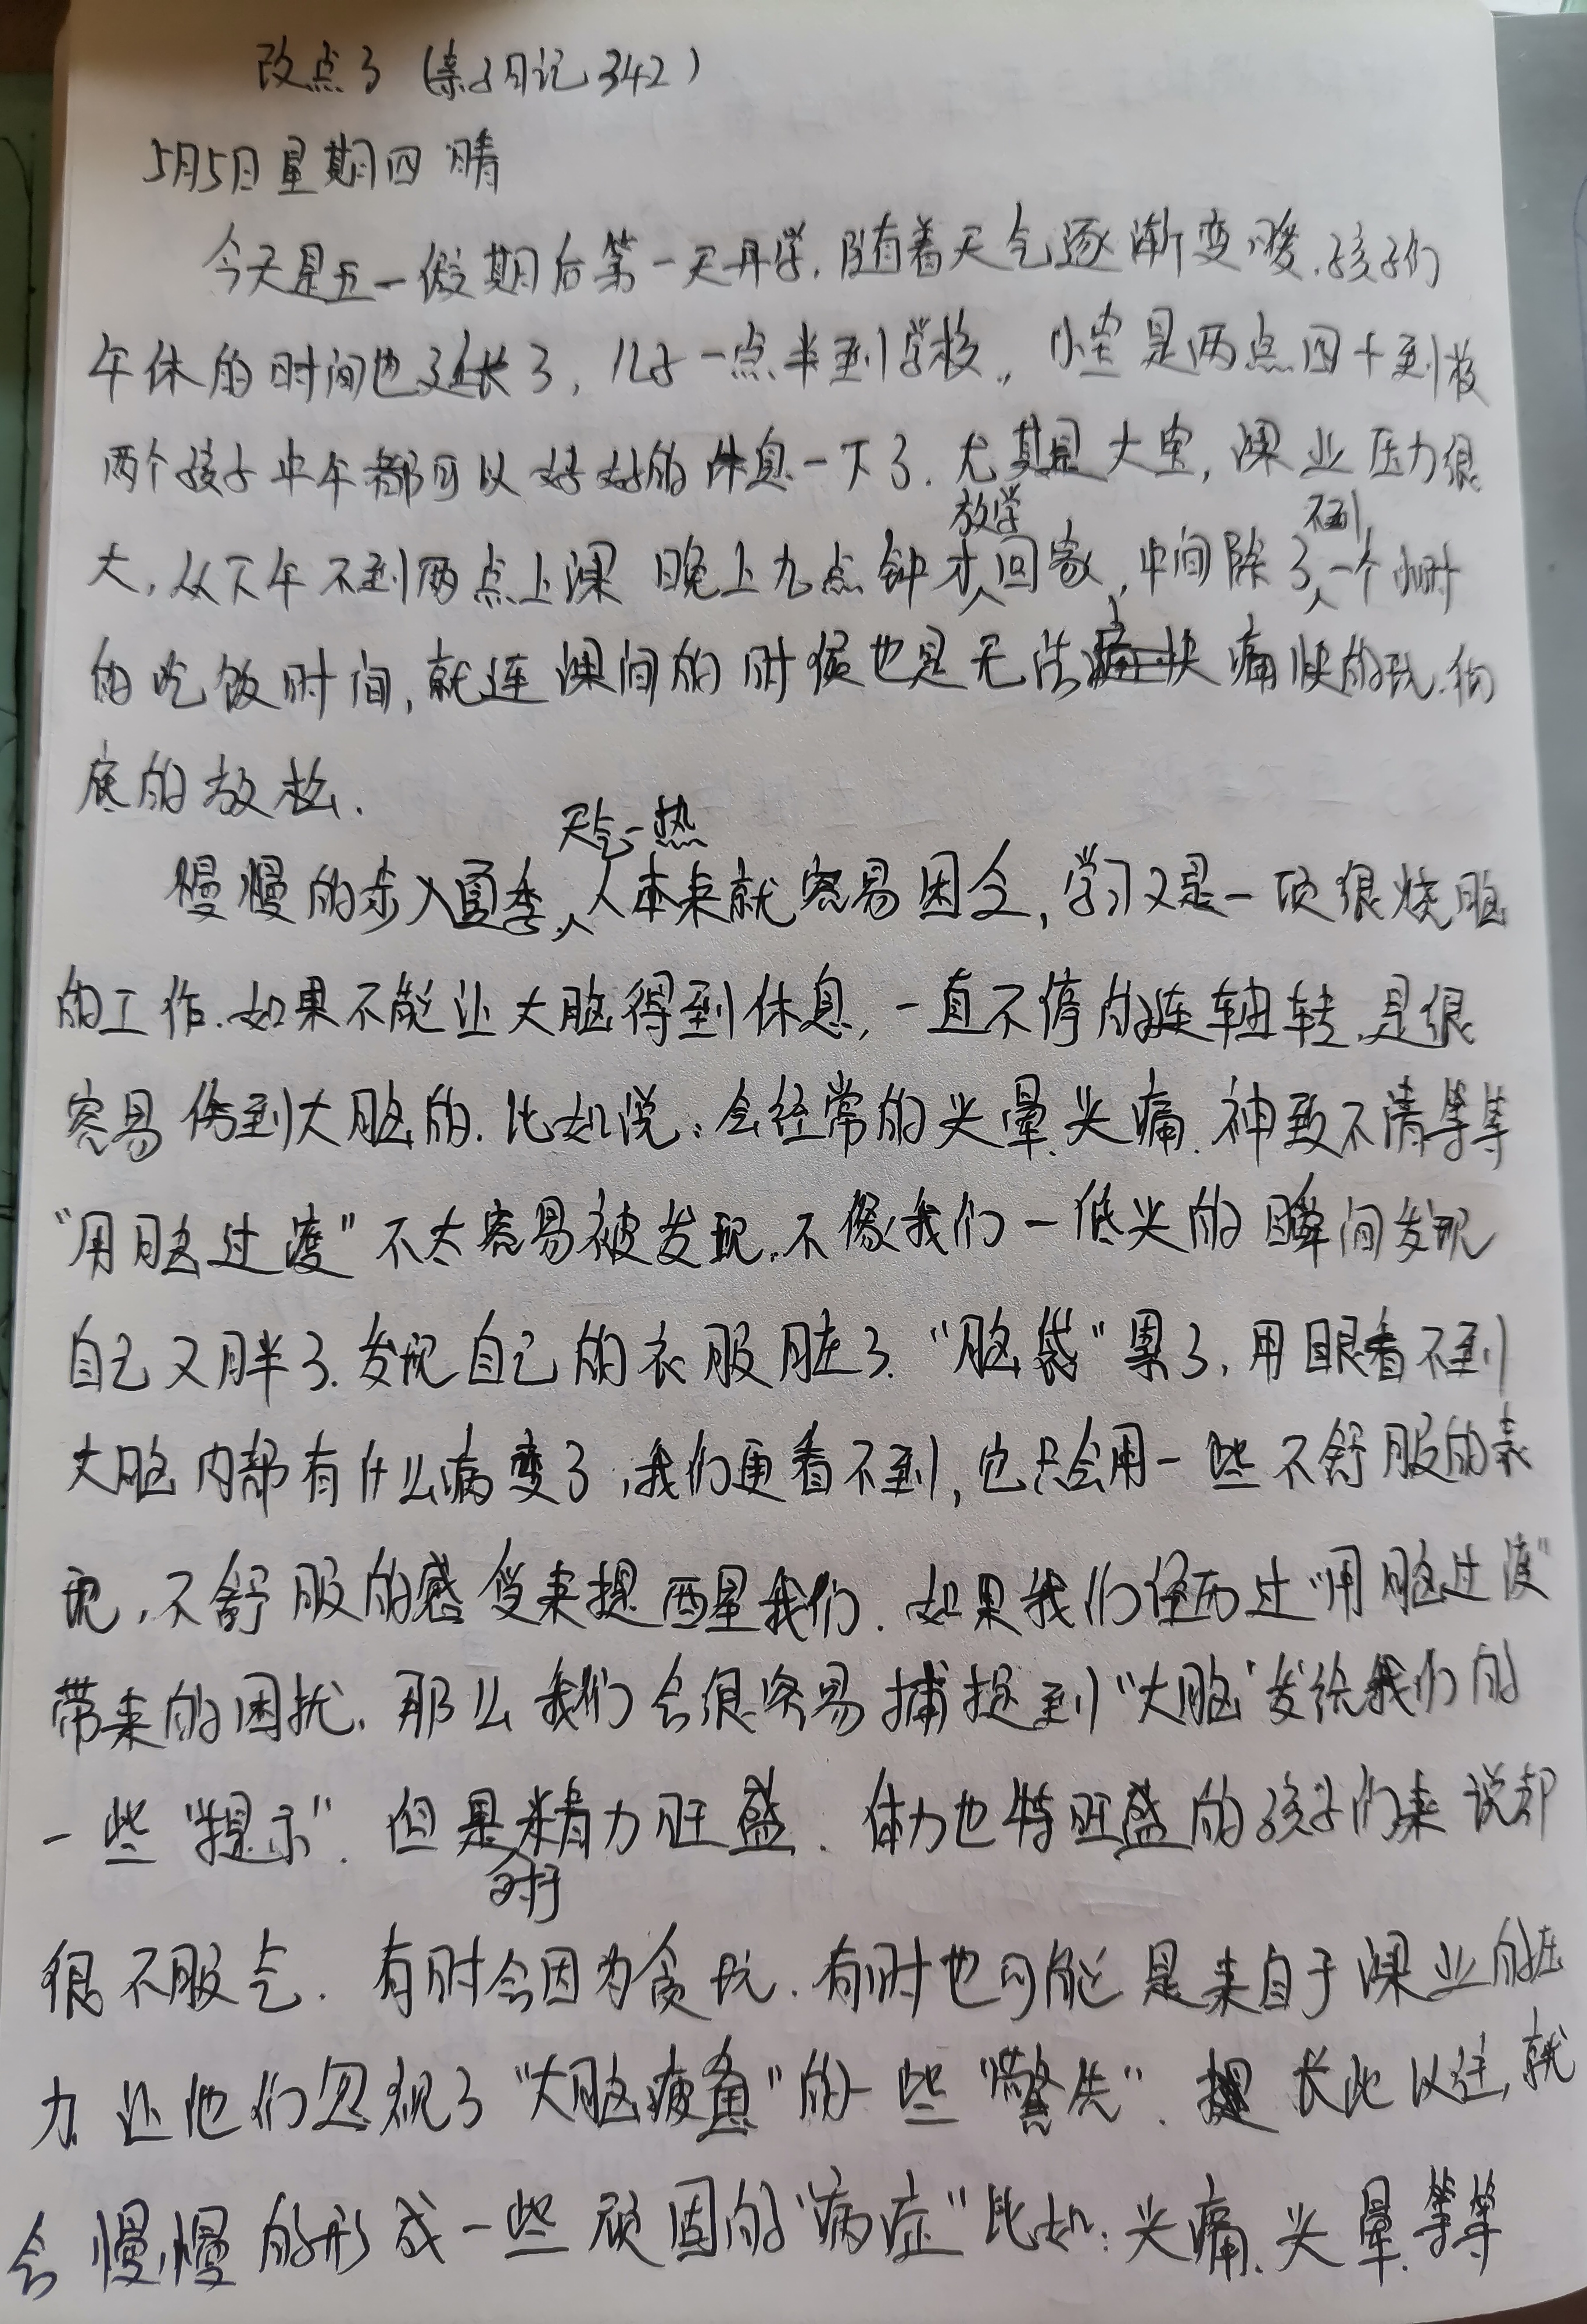 改点了(亲子日记342)
5月5日星期四 晴
今天是五一假期后第一天开学,随着天气逐渐变暖,孩子们
午休的时间也延长了,儿子一点半到学校,小宝是两点四十到校
两个孩子中午都可以好好的休息一下了.尤其是大宝,课业压力很
大,从下午不到两点上课 晚上九点钟才放学回家,中间除了不到一个小时
的吃饭时间,就连课间的时候也是无法痛快的玩.彻
底的放松.
慢慢的步入夏季,天气一热人本来就容易困乏,学习又是一项很烧脑
的工作.如果不能让大脑得到休息,一直不停的连轴转,是很
容易伤到大脑的.比如说:会经常的头晕、头痛、神致不清等等
“用脑过渡”不太容易被发现.不像我们一低头的瞬间发现
自己又胖了.发现自己的衣服脏了.“脑袋”累了,用眼看不到
大脑内部有什么病变了,我们更看不到,它只会用一些不舒服的表
现,不舒服的感受来提醒我们.如果我们经历过“用脑过渡”
带来的困扰,那么我们会很容易捕捉到“大脑”发给我们的
一些“提示”.但是对于精力旺盛、体力也特旺盛的孩子们来说却
很不服气.有时会因为贪玩.有时也可能是来自于课业的压
力让他们忽视了“大脑疲惫”的一些“警告”.长此以往,就
会慢慢的形成一些顽固的“病症”比如:头痛、头晕、等等